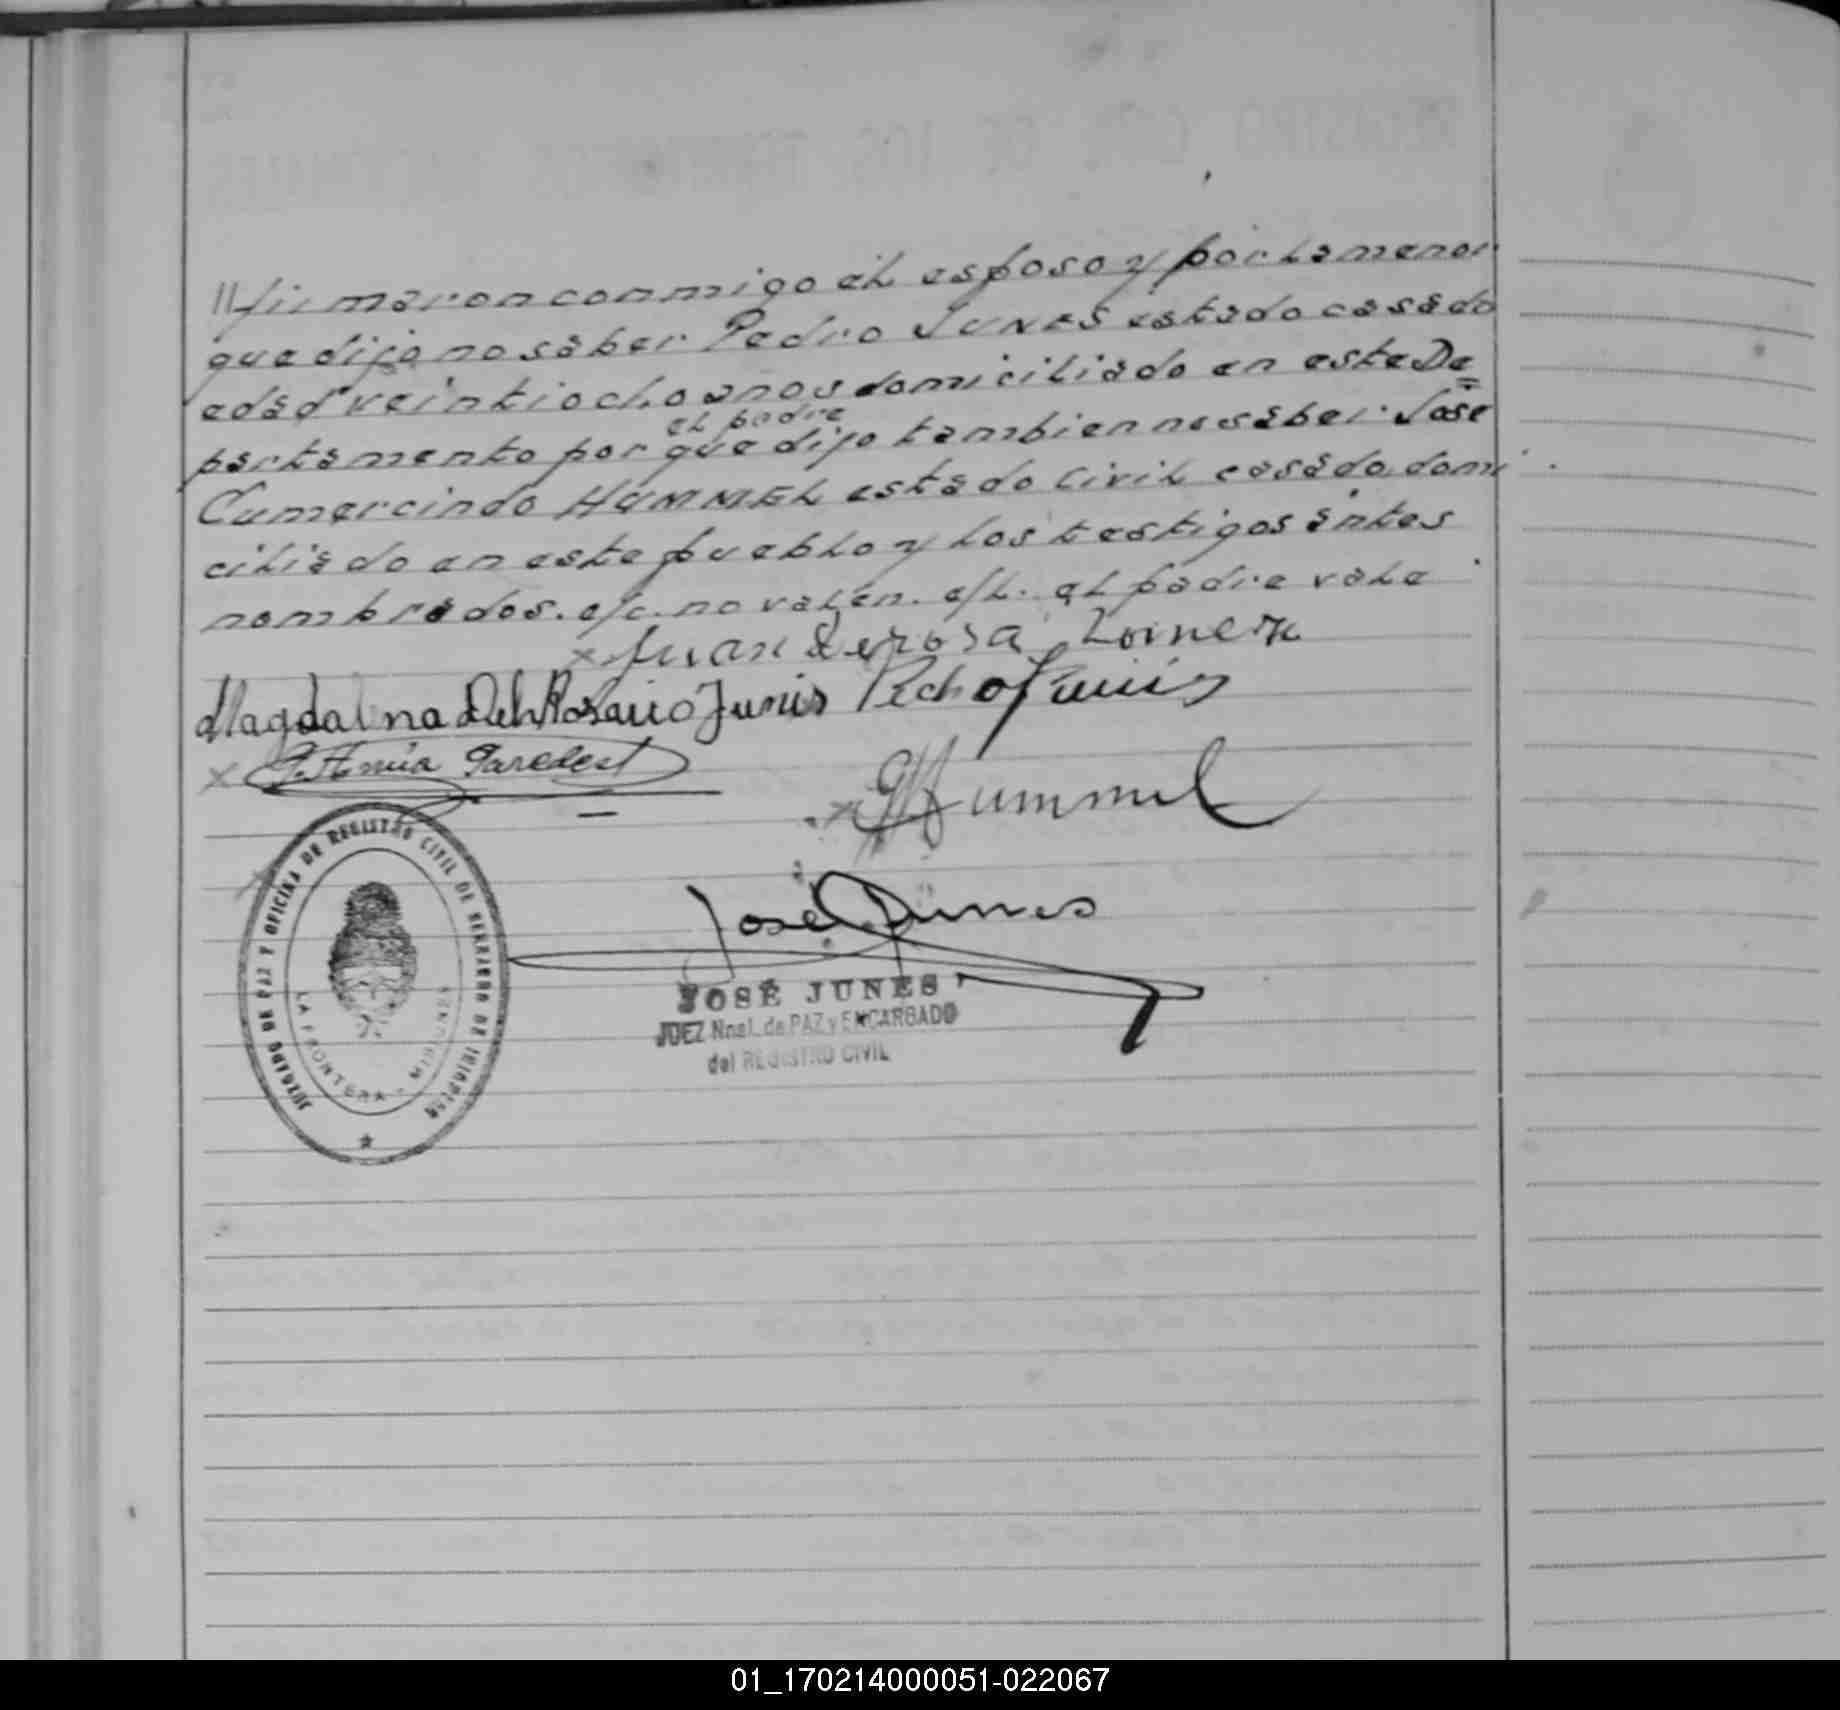 // firmaron conmigo el esposo y por la menor
que dijo no saber Pedro JUNES estado casado
edad veintiocho anos domiciliado en este De=
el padre
partamento por que dijo tambien no saber Jose
Cumercindo HUMMEL estado civil casado domi
ciliado en este pueblo y los testigos antes
nombrados. e/c. no valen. e/l. el padre vale
x Juan
Magdalena Del Rosario Junes Pedro Junes
x Paredes
x G Hummel
José Junes
JOSÉ JUNES
JUEZ Nnal. de PAZ y ENCARGADO
del REGISTRO CIVIL
JUZGADO DE PAZ Y OFICINA DE REGISTRO CIVIL DE
LA FRONTERA - MISIONES
01_170214000051-022067